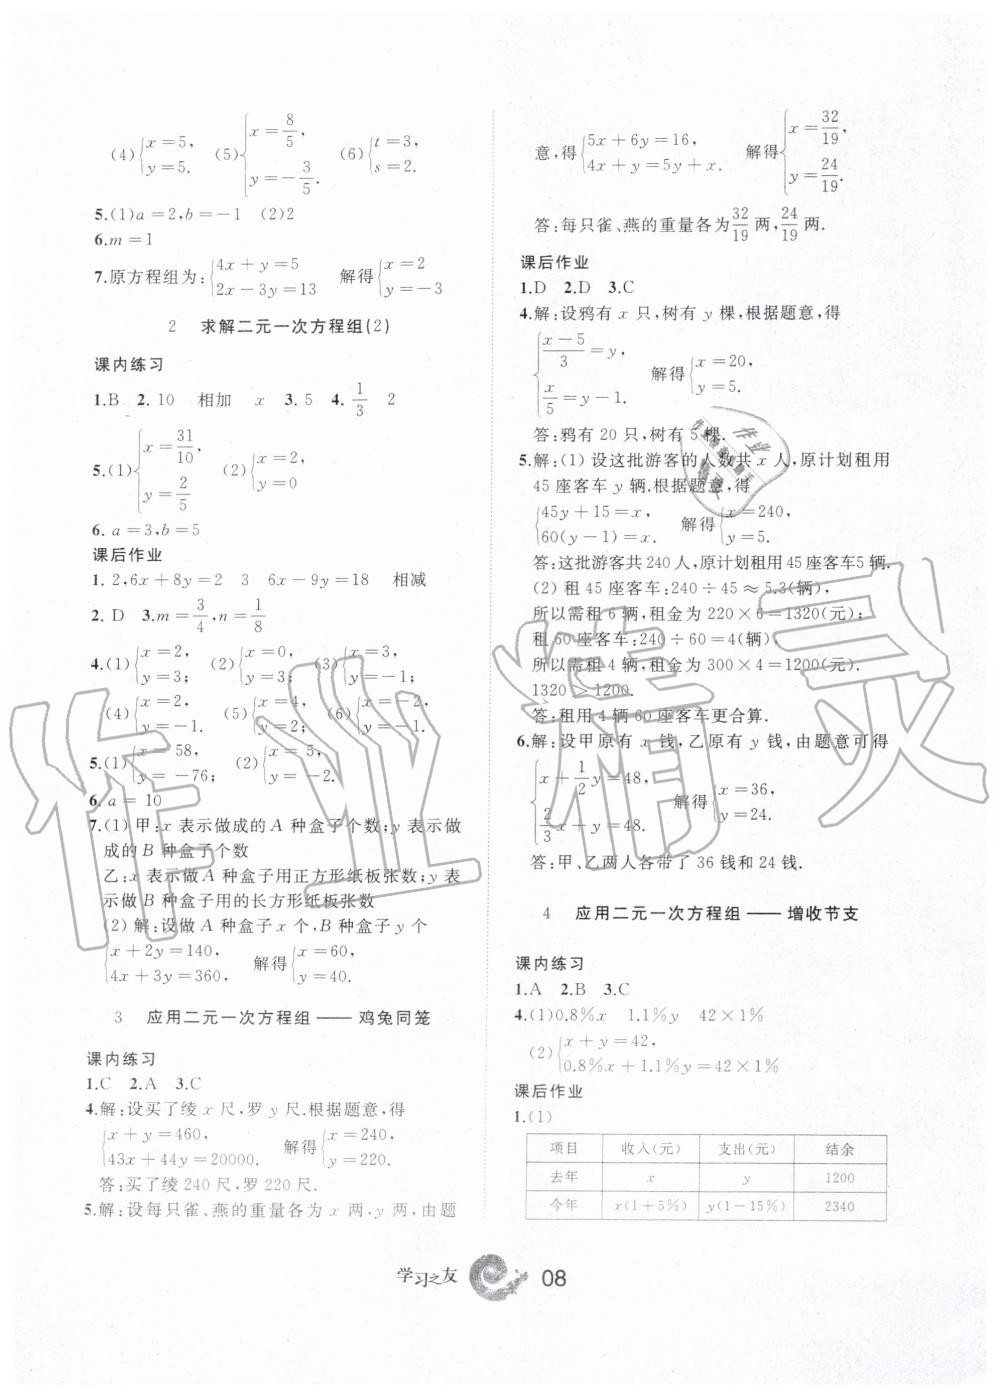 (4){x=5, y=5. (5){x=8/5, y=-3/5. (6){t=3, s=2.
5.(1)a=2,b=-1 (2)2
6.m=1
7.原方程组为:{4x+y=5 2x-3y=13 解得{x=2 y=-3
2 求解二元一次方程组(2)
课内练习
1.B 2.10 相加 x 3.5 4.1/3 2
5.(1){x=31/10, y=2/5 (2){x=2, y=0
6.a=3,b=5
课后作业
1.2,6x+8y=2 3 6x-9y=18 相减
2.D 3.m=3/4,n=1/8
4.(1){x=2, y=3; (2){x=0, y=3; (3){x=3, y=-1;
(4){x=2, y=-1. (5){x=4, y=2; (6){x=2, y=-1.
5.(1){x=58, y=-76; (2){x=5, y=-2.
6.a=10
7.(1)甲:x 表示做成的 A 种盒子个数;y 表示做
成的 B 种盒子个数
乙:x 表示做 A 种盒子用正方形纸板张数;y 表
示做 B 种盒子用的长方形纸板张数
(2)解:设做 A 种盒子 x 个,B 种盒子 y 个
{x+2y=140, 4x+3y=360, 解得{x=60, y=40.
3 应用二元一次方程组——鸡兔同笼
课内练习
1.C 2.A 3.C
4.解:设买了绫 x 尺,罗 y 尺.根据题意,得
{x+y=460, 43x+44y=20000. 解得{x=240, y=220.
答:买了绫 240 尺,罗 220 尺.
5.解:设每只雀、燕的重量各为 x 两,y 两,由题
意,得{5x+6y=16, 4x+y=5y+x. 解得{x=32/19, y=24/19.
答:每只雀、燕的重量各为32/19两,24/19两.
课后作业
1.D 2.D 3.C
4.解:设鸦有 x 只,树有 y 棵,根据题意,得
{(x-5)/3=y, x/5=y-1. 解得{x=20, y=5.
答:鸦有 20 只,树有 5 棵.
5.解:(1)设这批游客的人数共 x 人,原计划租用
45 座客车 y 辆.根据题意,得
{45y+15=x, 60(y-1)=x. 解得{x=240, y=5.
答:这批游客共 240 人,原计划租用 45 座客车5 辆.
(2)租 45 座客车:240÷45≈5.3(辆),
所以需租 6 辆,租金为 220×6=1320(元);
租 60 座客车:240÷60=4(辆),
所以需租 4 辆,租金为 300×4=1200(元).
1320>1200.
答:租用 4 辆 60 座客车更合算.
6.解:设甲原有 x 钱,乙原有 y 钱,由题意可得
{x+1/2y=48, 2/3x+y=48. 解得{x=36, y=24.
答:甲、乙两人各带了 36 钱和 24 钱.
4 应用二元一次方程组——增收节支
课内练习
1.A 2.B 3.C
4.(1)0.8%x 1.1%y 42×1%
(2){x+y=42, 0.8%x+1.1%y=42×1%
课后作业
1.(1)
项目 收入(元) 支出(元) 结余
去年 x y 1200
今年 x(1+5%) y(1-15%) 2340
学习之友 08
作业精灵